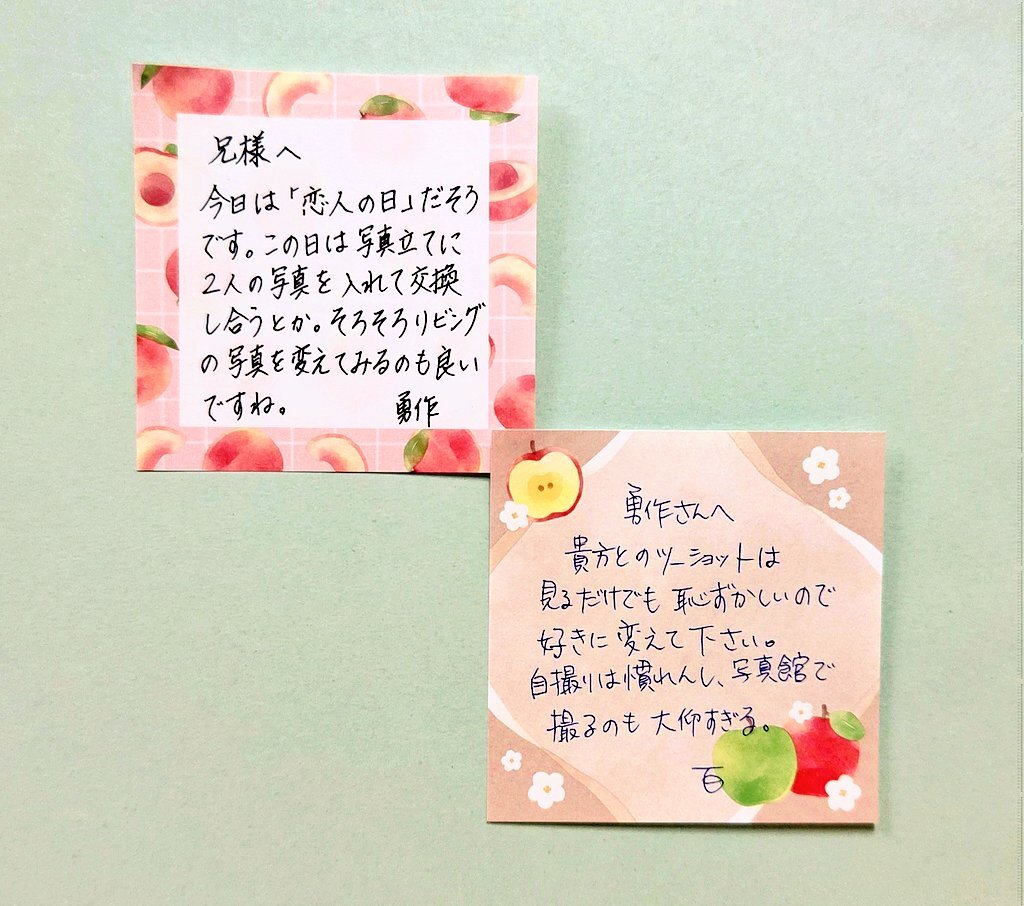 兄様へ
今日は「恋人の日」だそう
です。この日は写真立てに
2人の写真を入れて交換
し合うとか。そろそろリビング
の写真を変えてみるのも良い
ですね。 勇作
勇作さんへ
貴方とのツーショットは
見るだけでも恥ずかしいので
好きに変えて下さい。
自撮りは慣れんし、写真館で
撮るのも大仰すぎる。
百